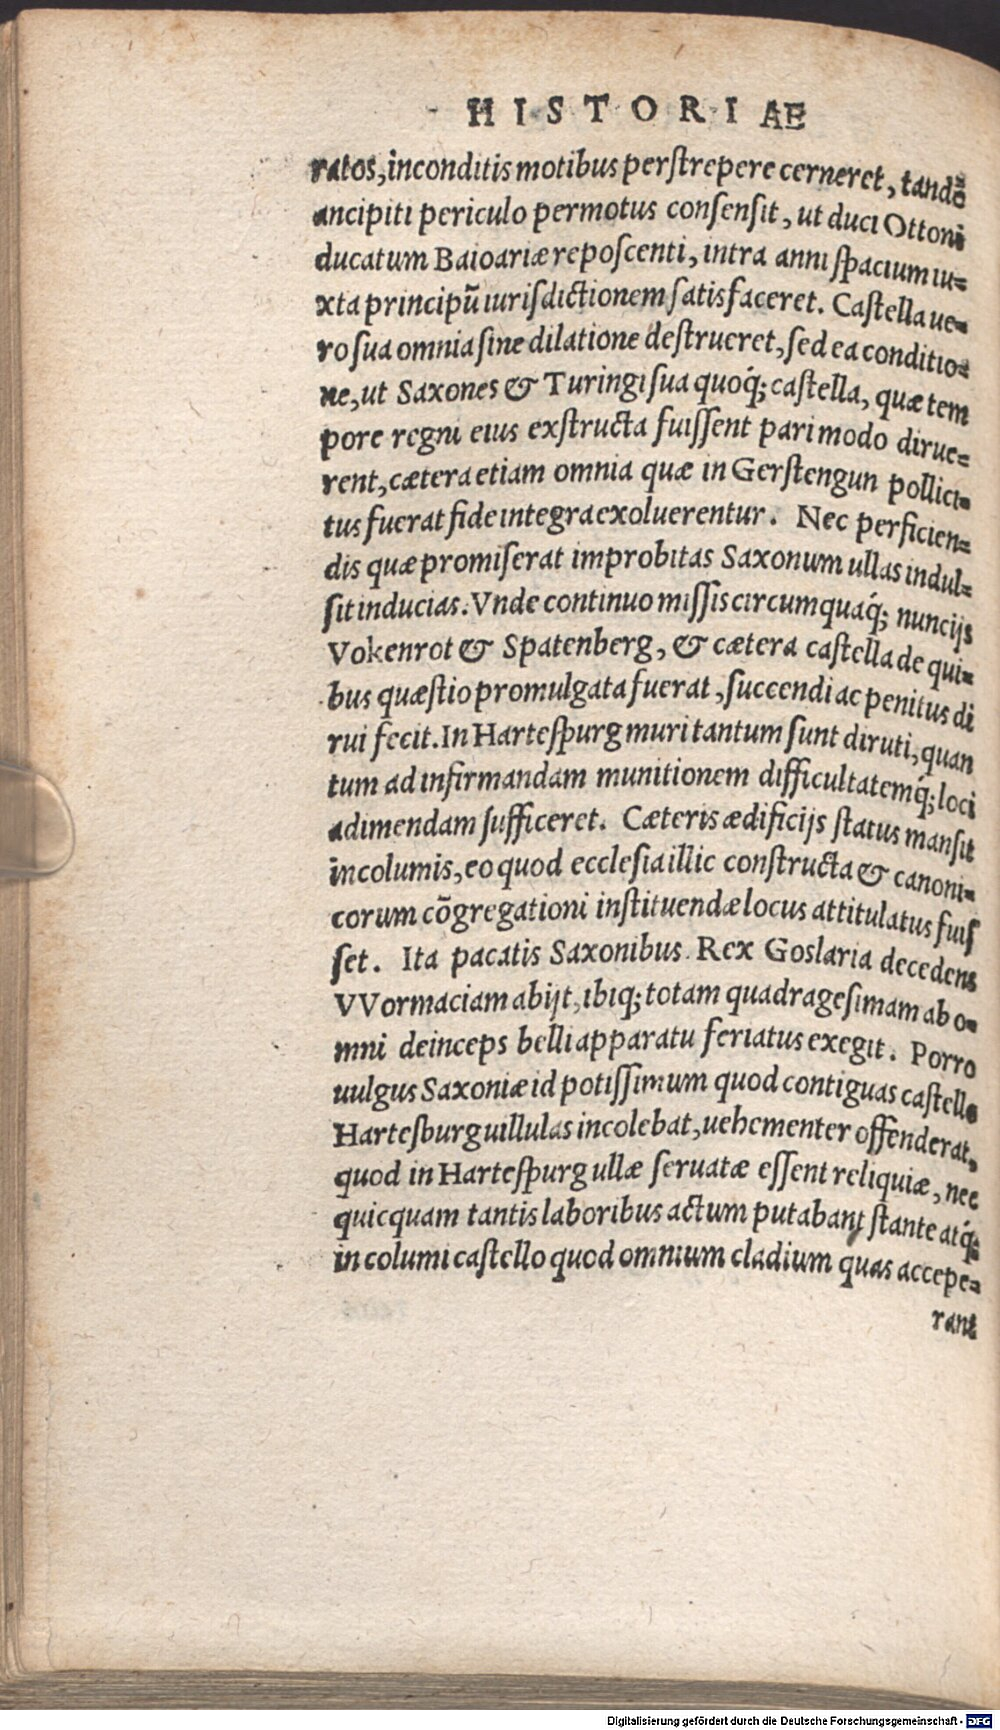 HISTORIAE
ratos, inconditis motibus perstrepere cerneret, tandē
ancipiti periculo permotus consensit, ut duci Ottoni
ducatum Baioariæ reposcenti, intra anni spacium iu=
xta principū iurisdictionem satisfaceret. Castella ue=
ro sua omnia sine dilatione destrueret, sed ea conditio=
ne, ut Saxones & Turingi sua quoq́; castella, quæ tem
pore regni eius exstructa fuissent pari modo dirue=
rent, cætera etiam omnia quæ in Gerstengun pollici=
tus fuerat fide integra exoluerentur. Nec perficien=
dis quæ promiserat improbitas Saxonum ullas indul=
sit inducias. Vnde continuo missis circumquaq́; nuncijs
Vokenrot & Spatenberg, & cætera castella de qui=
bus quæstio promulgata fuerat, succendi ac penitus di
rui fecit. In Hartespurg muri tantum sunt diruti, quan
tum ad infirmandam munitionem difficultatemq́; loci
adimendam sufficeret. Cæteris ædificijs status mansit
incolumis, eo quod ecclesia illic constructa & canoni=
corum cōgregationi instituendæ locus attitulatus fuis
set. Ita pacatis Saxonibus Rex Goslaria decedens
VVormaciam abijt, ibiq; totam quadragesimam ab o=
mni deinceps belli apparatu feriatus exegit. Porro
uulgus Saxoniæ id potissimum quod contiguas castello
Hartesburg uillulas incolebat, uehementer offenderat,
quod in Hartespurg ullæ seruatæ essent reliquiæ, nec
quicquam tantis laboribus actum putabant stante atq́;
incolumi castello quod omnium cladium quas accepe=
rant
Digitalisierung gefördert durch die Deutsche Forschungsgemeinschaft - DFG